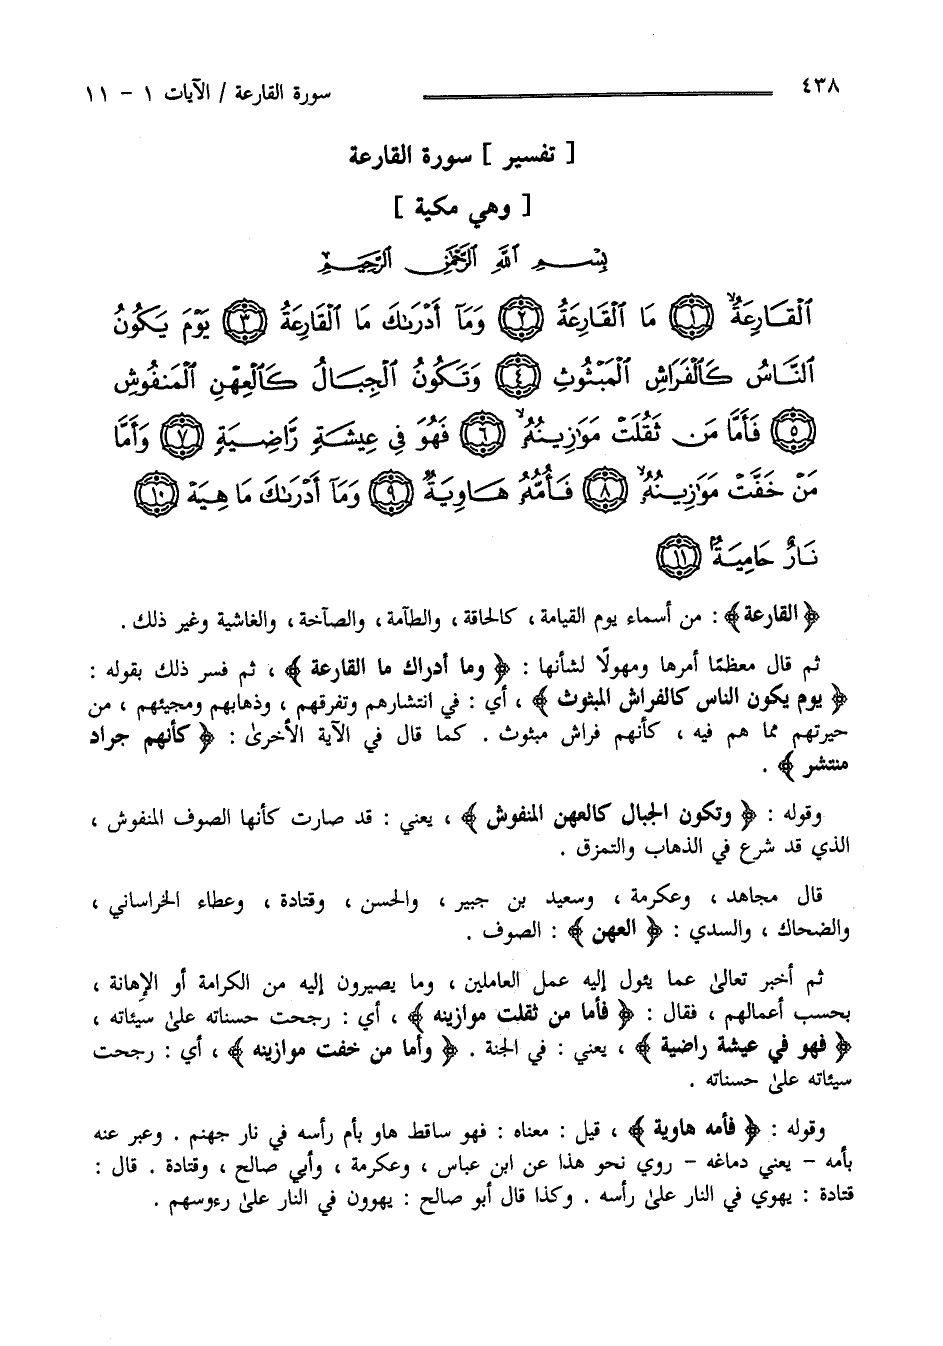 ٤٣٨ سورة القارعة / الآيات ١ - ١١
[ تفسير ] سورة القارعة
[ وهي مكية ]
بِسْمِ ٱللَّهِ ٱلرَّحْمَٰنِ ٱلرَّحِيمِ
ٱلْقَارِعَةُ ﴿١﴾ مَا ٱلْقَارِعَةُ ﴿٢﴾ وَمَآ أَدْرَىٰكَ مَا ٱلْقَارِعَةُ ﴿٣﴾ يَوْمَ يَكُونُ
ٱلنَّاسُ كَٱلْفَرَاشِ ٱلْمَبْثُوثِ ﴿٤﴾ وَتَكُونُ ٱلْجِبَالُ كَٱلْعِهْنِ ٱلْمَنفُوشِ
﴿٥﴾ فَأَمَّا مَن ثَقُلَتْ مَوَٰزِينُهُۥ ﴿٦﴾ فَهُوَ فِى عِيشَةٍ رَّاضِيَةٍ ﴿٧﴾ وَأَمَّا
مَنْ خَفَّتْ مَوَٰزِينُهُۥ ﴿٨﴾ فَأُمُّهُۥ هَاوِيَةٌ ﴿٩﴾ وَمَآ أَدْرَىٰكَ مَا هِيَهْ ﴿١٠﴾
نَارٌ حَامِيَةٌۢ ﴿١١﴾
﴿ القارعة ﴾ : من أسماء يوم القيامة ، كالحاقة ، والطآمة ، والصآخة ، والغاشية وغير ذلك .
ثم قال معظمًا أمرها ومهولًا لشأنها : ﴿ وما أدراك ما القارعة ﴾ ، ثم فسر ذلك بقوله :
﴿ يوم يكون الناس كالفراش المبثوث ﴾ ، أي : في انتشارهم وتفرقهم ، وذهابهم ومجيئهم ، من
حيرتهم مما هم فيه ، كأنهم فراش مبثوث . كما قال في الآية الأخرىٰ : ﴿ كأنهم جراد
منتشر ﴾ .
وقوله : ﴿ وتكون الجبال كالعهن المنفوش ﴾ ، يعني : قد صارت كأنها الصوف المنفوش ،
الذي قد شرع في الذهاب والتمزق .
قال مجاهد ، وعكرمة ، وسعيد بن جبير ، والحسن ، وقتادة ، وعطاء الخراساني ،
والضحاك ، والسدي : ﴿ العهن ﴾ : الصوف .
ثم أخبر تعالىٰ عما يئول إليه عمل العاملين ، وما يصيرون إليه من الكرامة أو الإهانة ،
بحسب أعمالهم ، فقال : ﴿ فأما من ثقلت موازينه ﴾ ، أي : رجحت حسناته علىٰ سيئاته ،
﴿ فهو في عيشة راضية ﴾ ، يعني : في الجنة . ﴿ وأما من خفت موازينه ﴾ ، أي : رجحت
سيئاته علىٰ حسناته .
وقوله : ﴿ فأمه هاوية ﴾ ، قيل : معناه : فهو ساقط هاو بأم رأسه في نار جهنم . وعبر عنه
بأمه - يعني دماغه - روي نحو هذا عن ابن عباس ، وعكرمة ، وأبي صالح ، وقتادة . قال :
قتادة : يهوي في النار علىٰ رأسه . وكذا قال أبو صالح : يهوون في النار علىٰ رءوسهم .